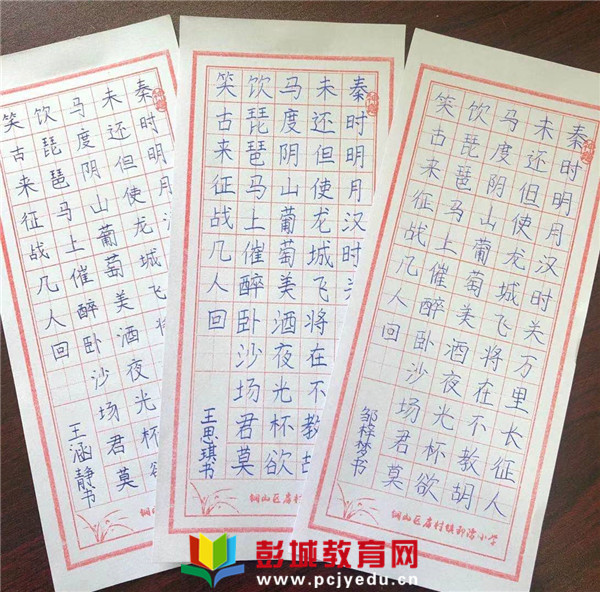 秦时明月
未还但使龙城飞
马度阴山葡萄美酒夜光杯
饮琵琶马上催醉卧沙场君莫
笑古来征战几人回
王涵静书
铜山
秦时明月汉时关
未还但使龙城飞将在不教
马度阴山葡萄美酒夜光杯欲
饮琵琶马上催醉卧沙场君莫
笑古来征战几人回
王思琪书
铜山区房村
秦时明月汉时关万里长征人
未还但使龙城飞将在不教胡
马度阴山葡萄美酒夜光杯欲
饮琵琶马上催醉卧沙场君莫
笑古来征战几人回
邹梓梦书
铜山区房村镇小学
彭城教育网
www.pcjyedu.cn